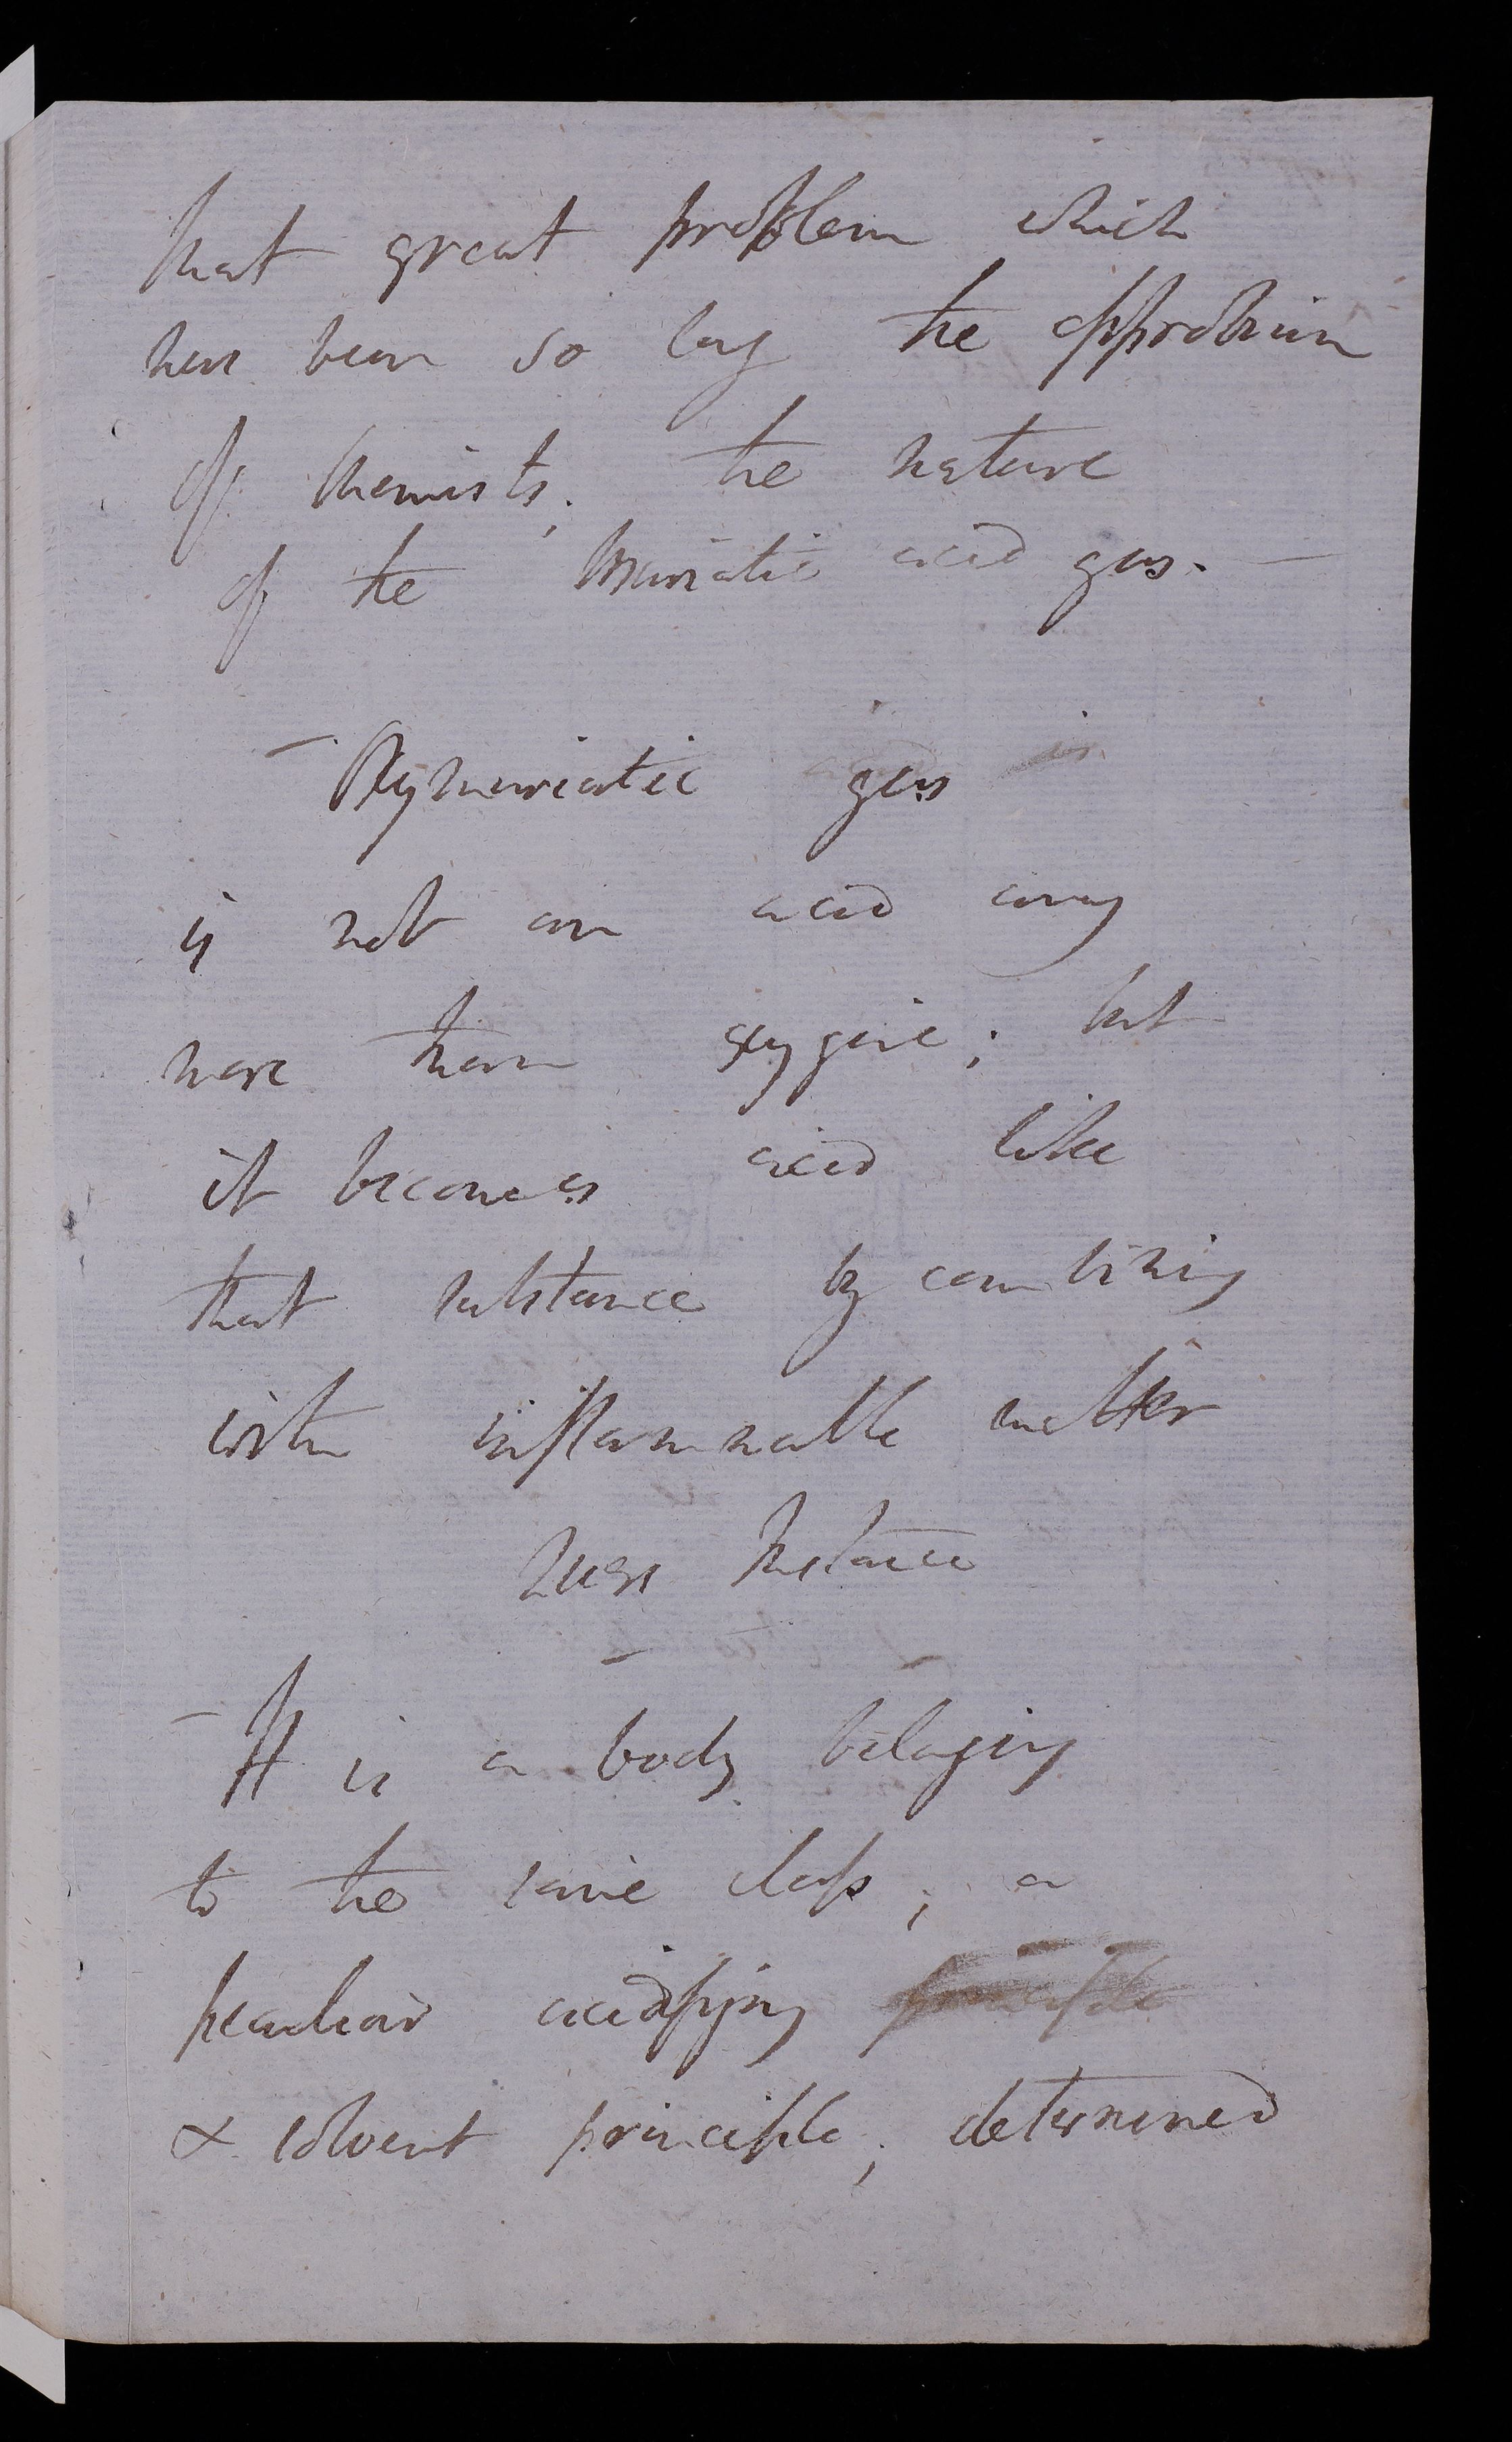 that great problem which
has been so long the opprobrium
of Chemists; the nature
of the Muriatic acid gas. —
— Oxymuriatic gas
is not an acid any
more than oxygene; but
it becomes acid like
that substance by combining
with inflammable matter
— It is a body belonging
to the same class; a
peculiar acidifying principle
& solvent principle; determined